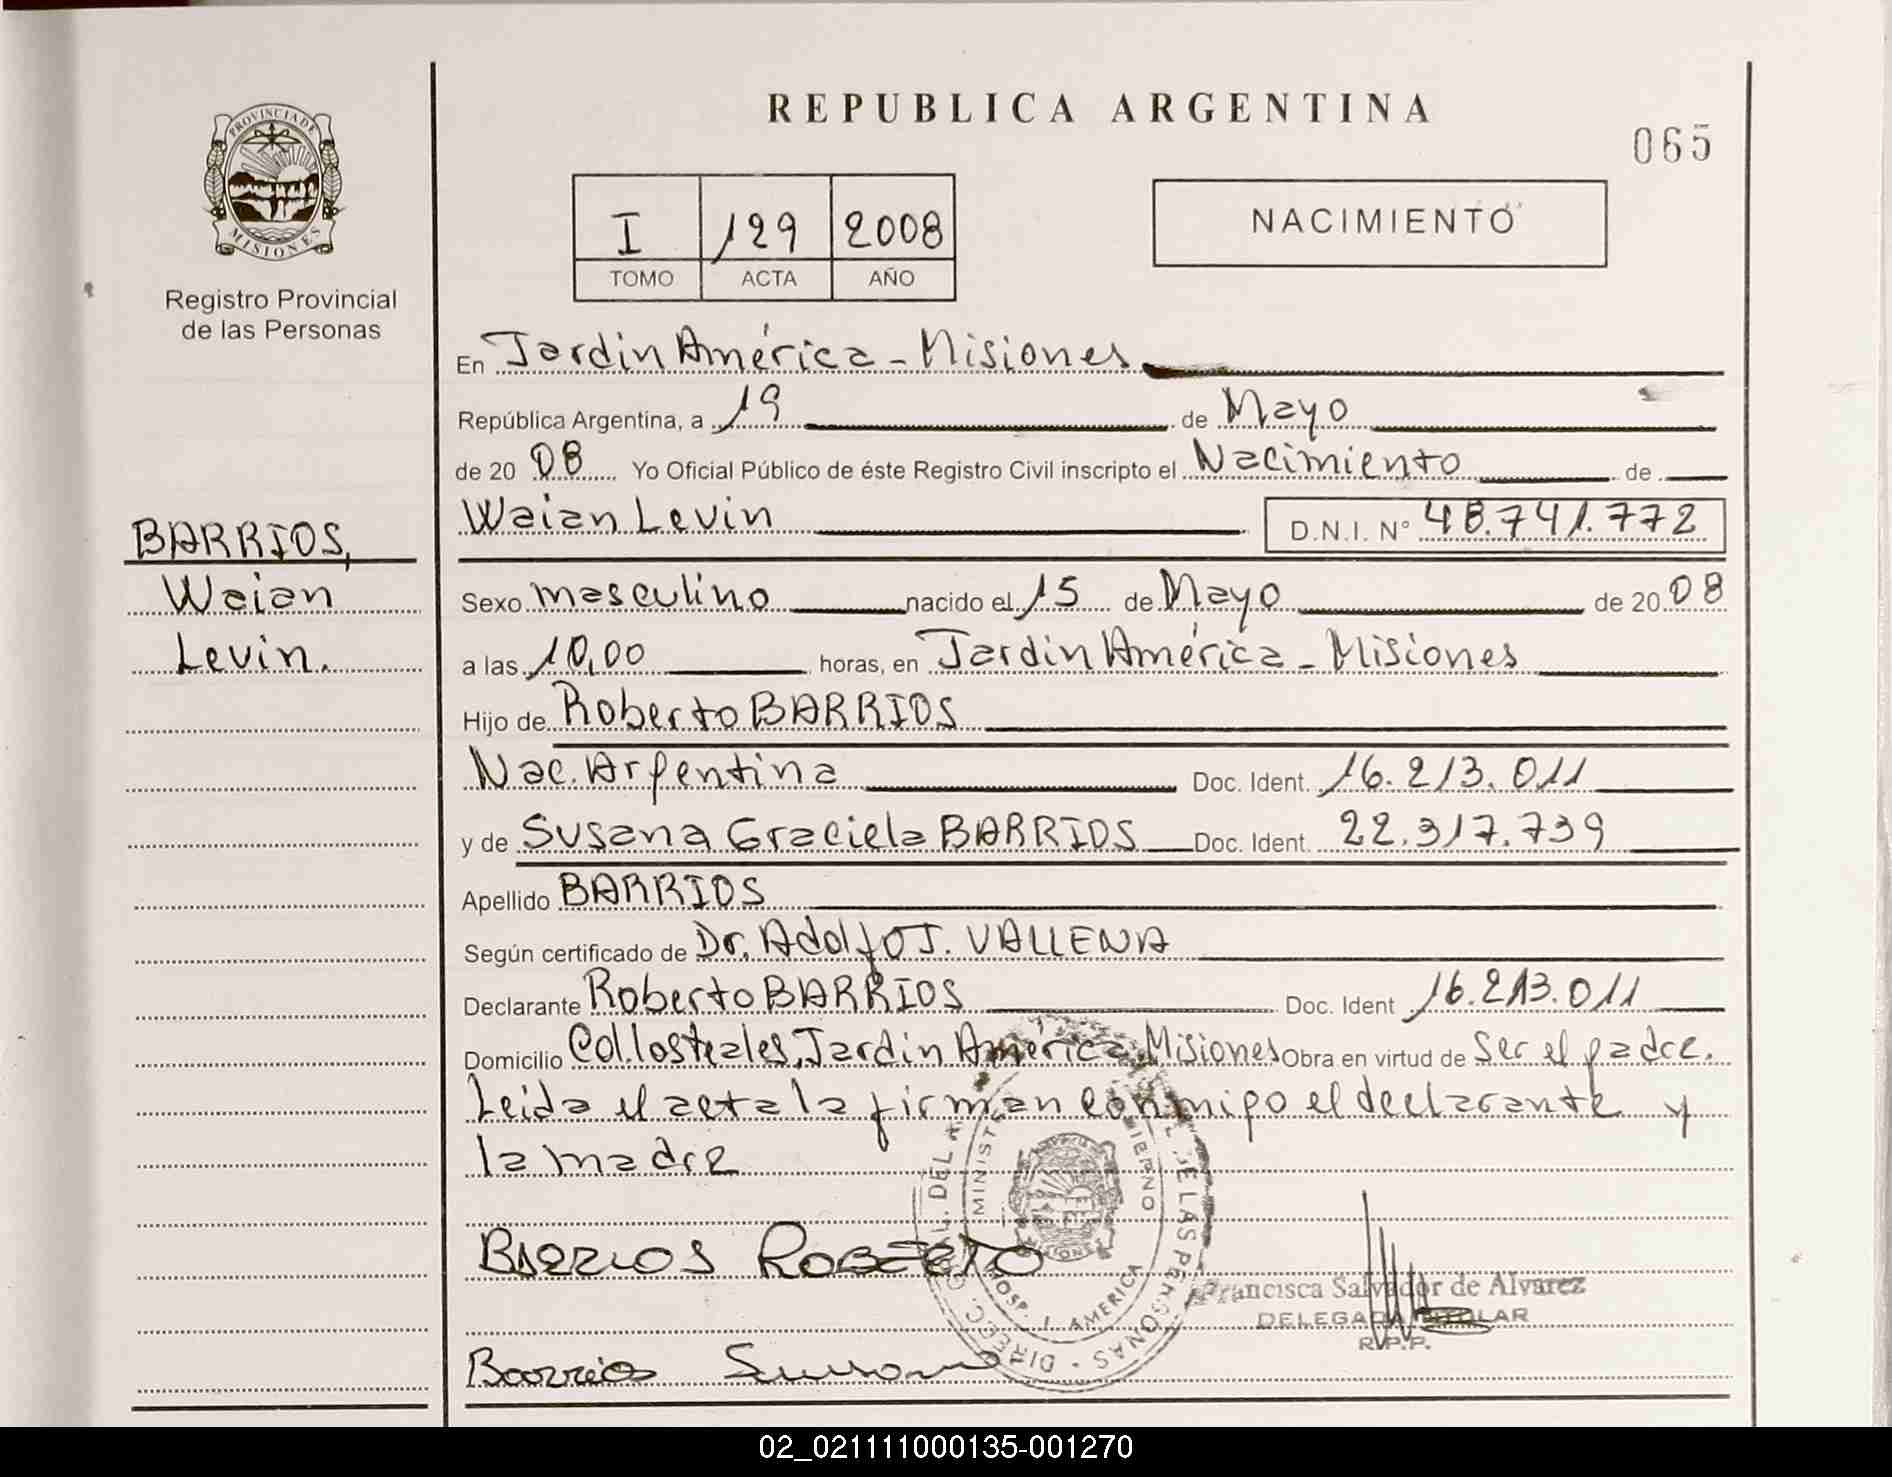 REPUBLICA ARGENTINA
065
PROVINCIA DE MISIONES
Registro Provincial
de las Personas
I 129 2008
TOMO ACTA AÑO
NACIMIENTO
En Jardin América - Misiones
República Argentina, a 19 de Mayo
de 20 08 Yo Oficial Público de éste Registro Civil inscripto el Nacimiento de
Waian Levin D.N.I. N° 48.741.772
BARRIOS,
Waian
Levin.
Sexo masculino nacido el 15 de Mayo de 20 08
a las 10,00 horas, en Jardin América - Misiones
Hijo de Roberto BARRIOS
Nac. Argentina Doc. Ident. 16.213.011
y de Susana Graciela BARRIOS Doc. Ident. 22.317.739
Apellido BARRIOS
Según certificado de Dr. Adolfo J. VALLENA
Declarante Roberto BARRIOS Doc. Ident 16.213.011
Domicilio Col. los teales, Jardin América Misiones Obra en virtud de ser el padre.
Leida el acta la firman conmigo el declarante y
la madre
BARRIOS ROBERTO
Francisca Salvador de Alvarez
DELEGADA TITULAR
R.P.P.
Barrios Susana
DIRECC. GRAL. DE LAS PERSONAS
HOSP. J. AMERICA
02_021111000135-001270